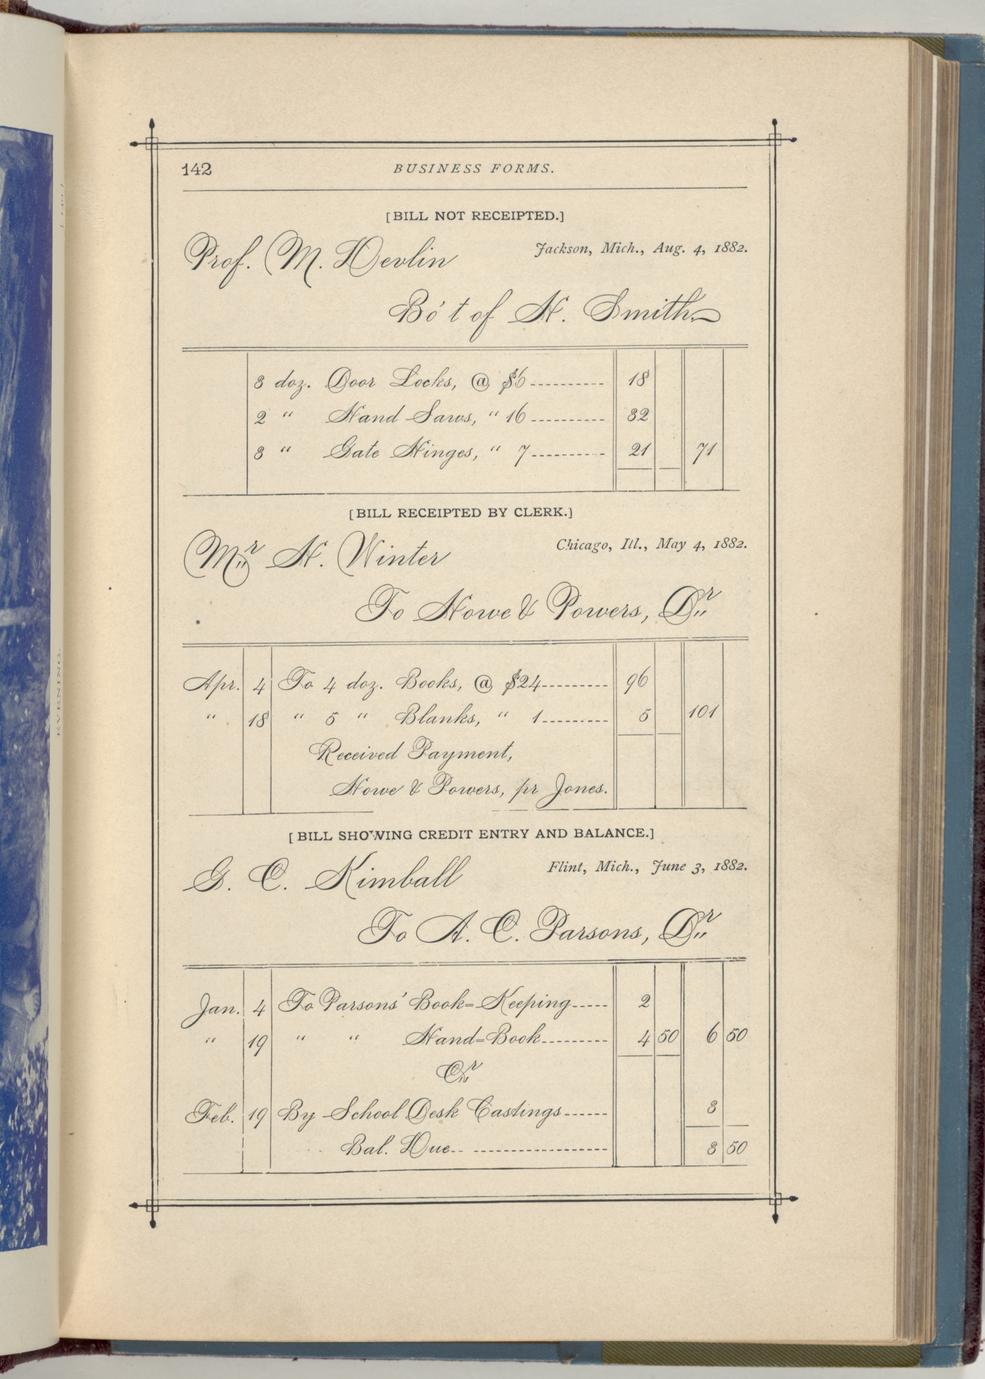 142 BUSINESS FORMS.
[BILL NOT RECEIPTED.]
Prof. M. Devlin Jackson, Mich., Aug. 4, 1882.
Bo't of H. Smith
3 doz. Door Locks, @ $6 18
2 " Hand Saws, " 16 32
3 " Gate Hinges, " 7 21 71
[BILL RECEIPTED BY CLERK.]
Mr H. Winter Chicago, Ill., May 4, 1882.
To Howe & Powers, Dr
Apr. 4 To 4 doz. Books, @ $24 96
" 18 " 5 " Blanks, " 1 5 101
Received Payment,
Howe & Powers, pr Jones.
[BILL SHOWING CREDIT ENTRY AND BALANCE.]
G. C. Kimball Flint, Mich., June 3, 1882.
To A. C. Parsons, Dr
Jan. 4 To Parsons' Book=Keeping 2
" 19 " " Hand=Book 4 50 6 50
Cr
Feb. 19 By School Desk Castings 3
Bal. Due 3 50